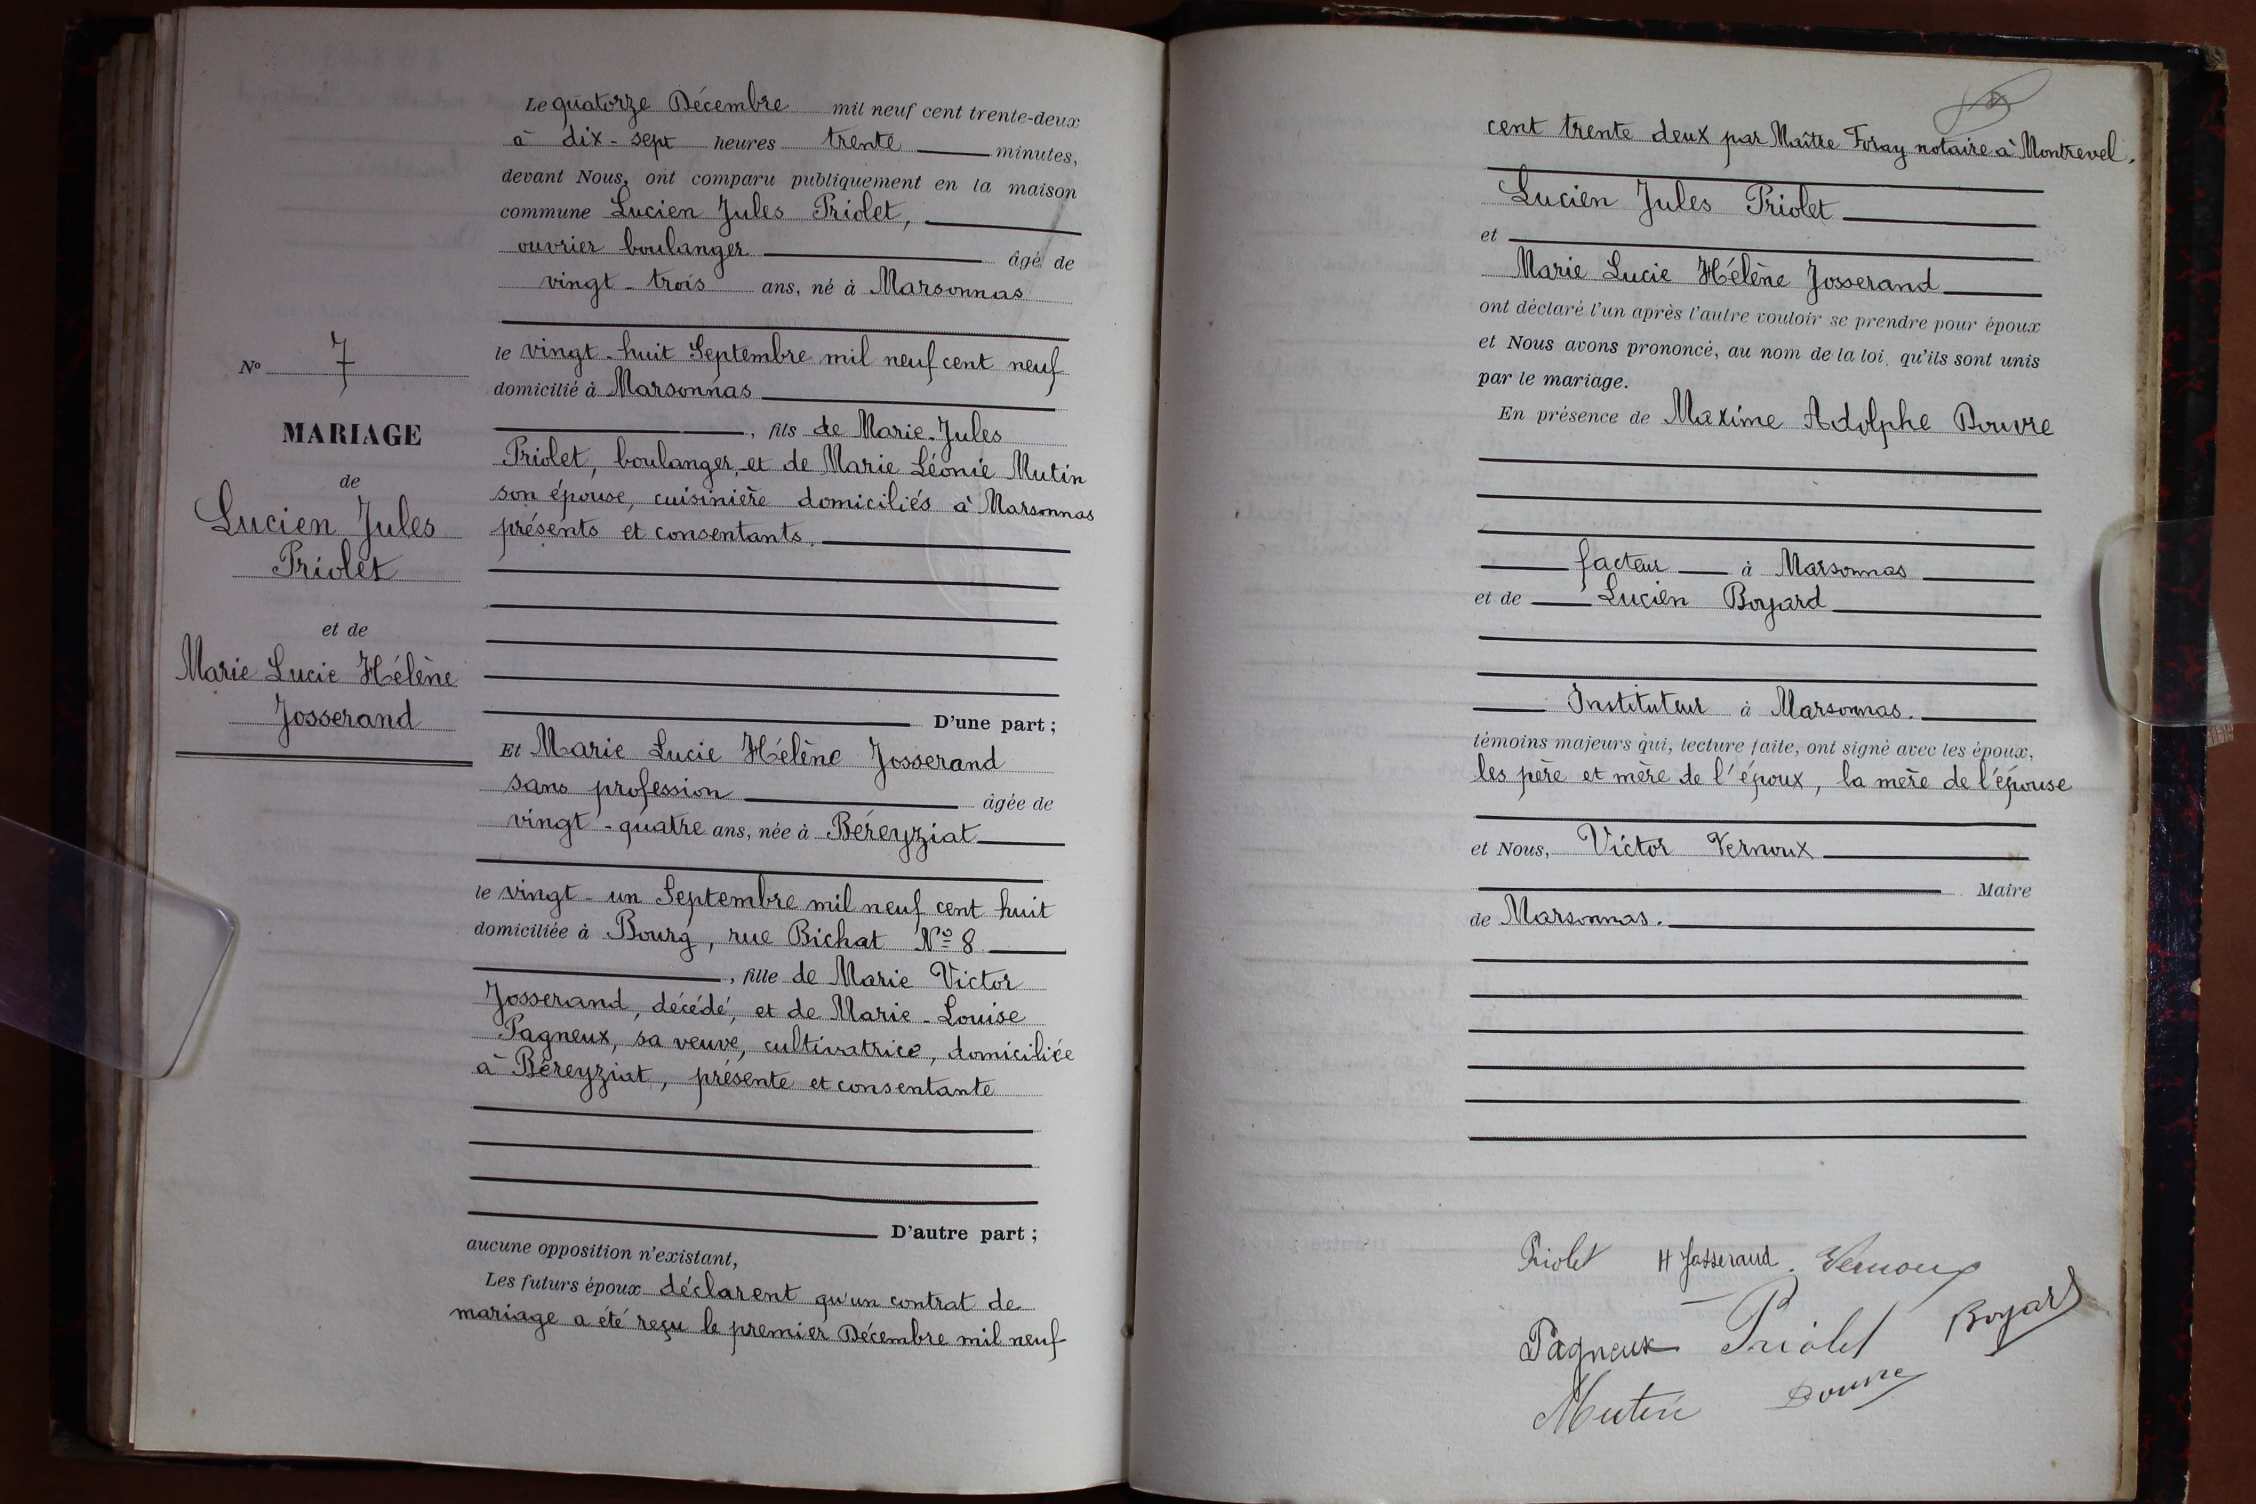 Le quatorze Décembre mil neuf cent trente-deux
à dix-sept heures trente minutes,
devant Nous, ont comparu publiquement en la maison
commune Lucien Jules Priolet,
ouvrier boulanger âgé de
vingt-trois ans, né à Marsonnas
le vingt-huit Septembre mil neuf cent neuf
domicilié à Marsonnas
, fils de Marie-Jules
Priolet, boulanger, et de Marie Léonie Mutin
son épouse, cuisinière domiciliés à Marsonnas
présents et consentants.
D'une part ;
Nº 7
MARIAGE
de
Lucien Jules
Priolet
et de
Marie Lucie Hélène
Josserand
Et Marie Lucie Hélène Josserand
sans profession âgée de
vingt-quatre ans, née à Béreyziat
le vingt-un Septembre mil neuf cent huit
domiciliée à Bourg, rue Bichat Nº 8
, fille de Marie Victor
Josserand, décédé, et de Marie-Louise
Pagneux, sa veuve, cultivatrice, domiciliée
à Béreyziat, présente et consentante
D'autre part ;
aucune opposition n'existant,
Les futurs époux déclarent qu'un contrat de
mariage a été reçu le premier Décembre mil neuf
cent trente deux par Maître Foray notaire à Montrevel.
Lucien Jules Priolet
et
Marie Lucie Hélène Josserand
ont déclaré l'un après l'autre vouloir se prendre pour époux
et Nous avons prononcé, au nom de la loi, qu'ils sont unis
par le mariage.
En présence de Maxime Adolphe Douvre
facteur à Marsonnas
et de Lucien Boyard
Instituteur à Marsonnas.
témoins majeurs qui, lecture faite, ont signé avec les époux,
les père et mère de l'époux, la mère de l'épouse
et Nous, Victor Vernoux
Maire
de Marsonnas.
Priolet H Josserand. Vernoux
Pagneux Priolet Boyard
Mutin Douvre